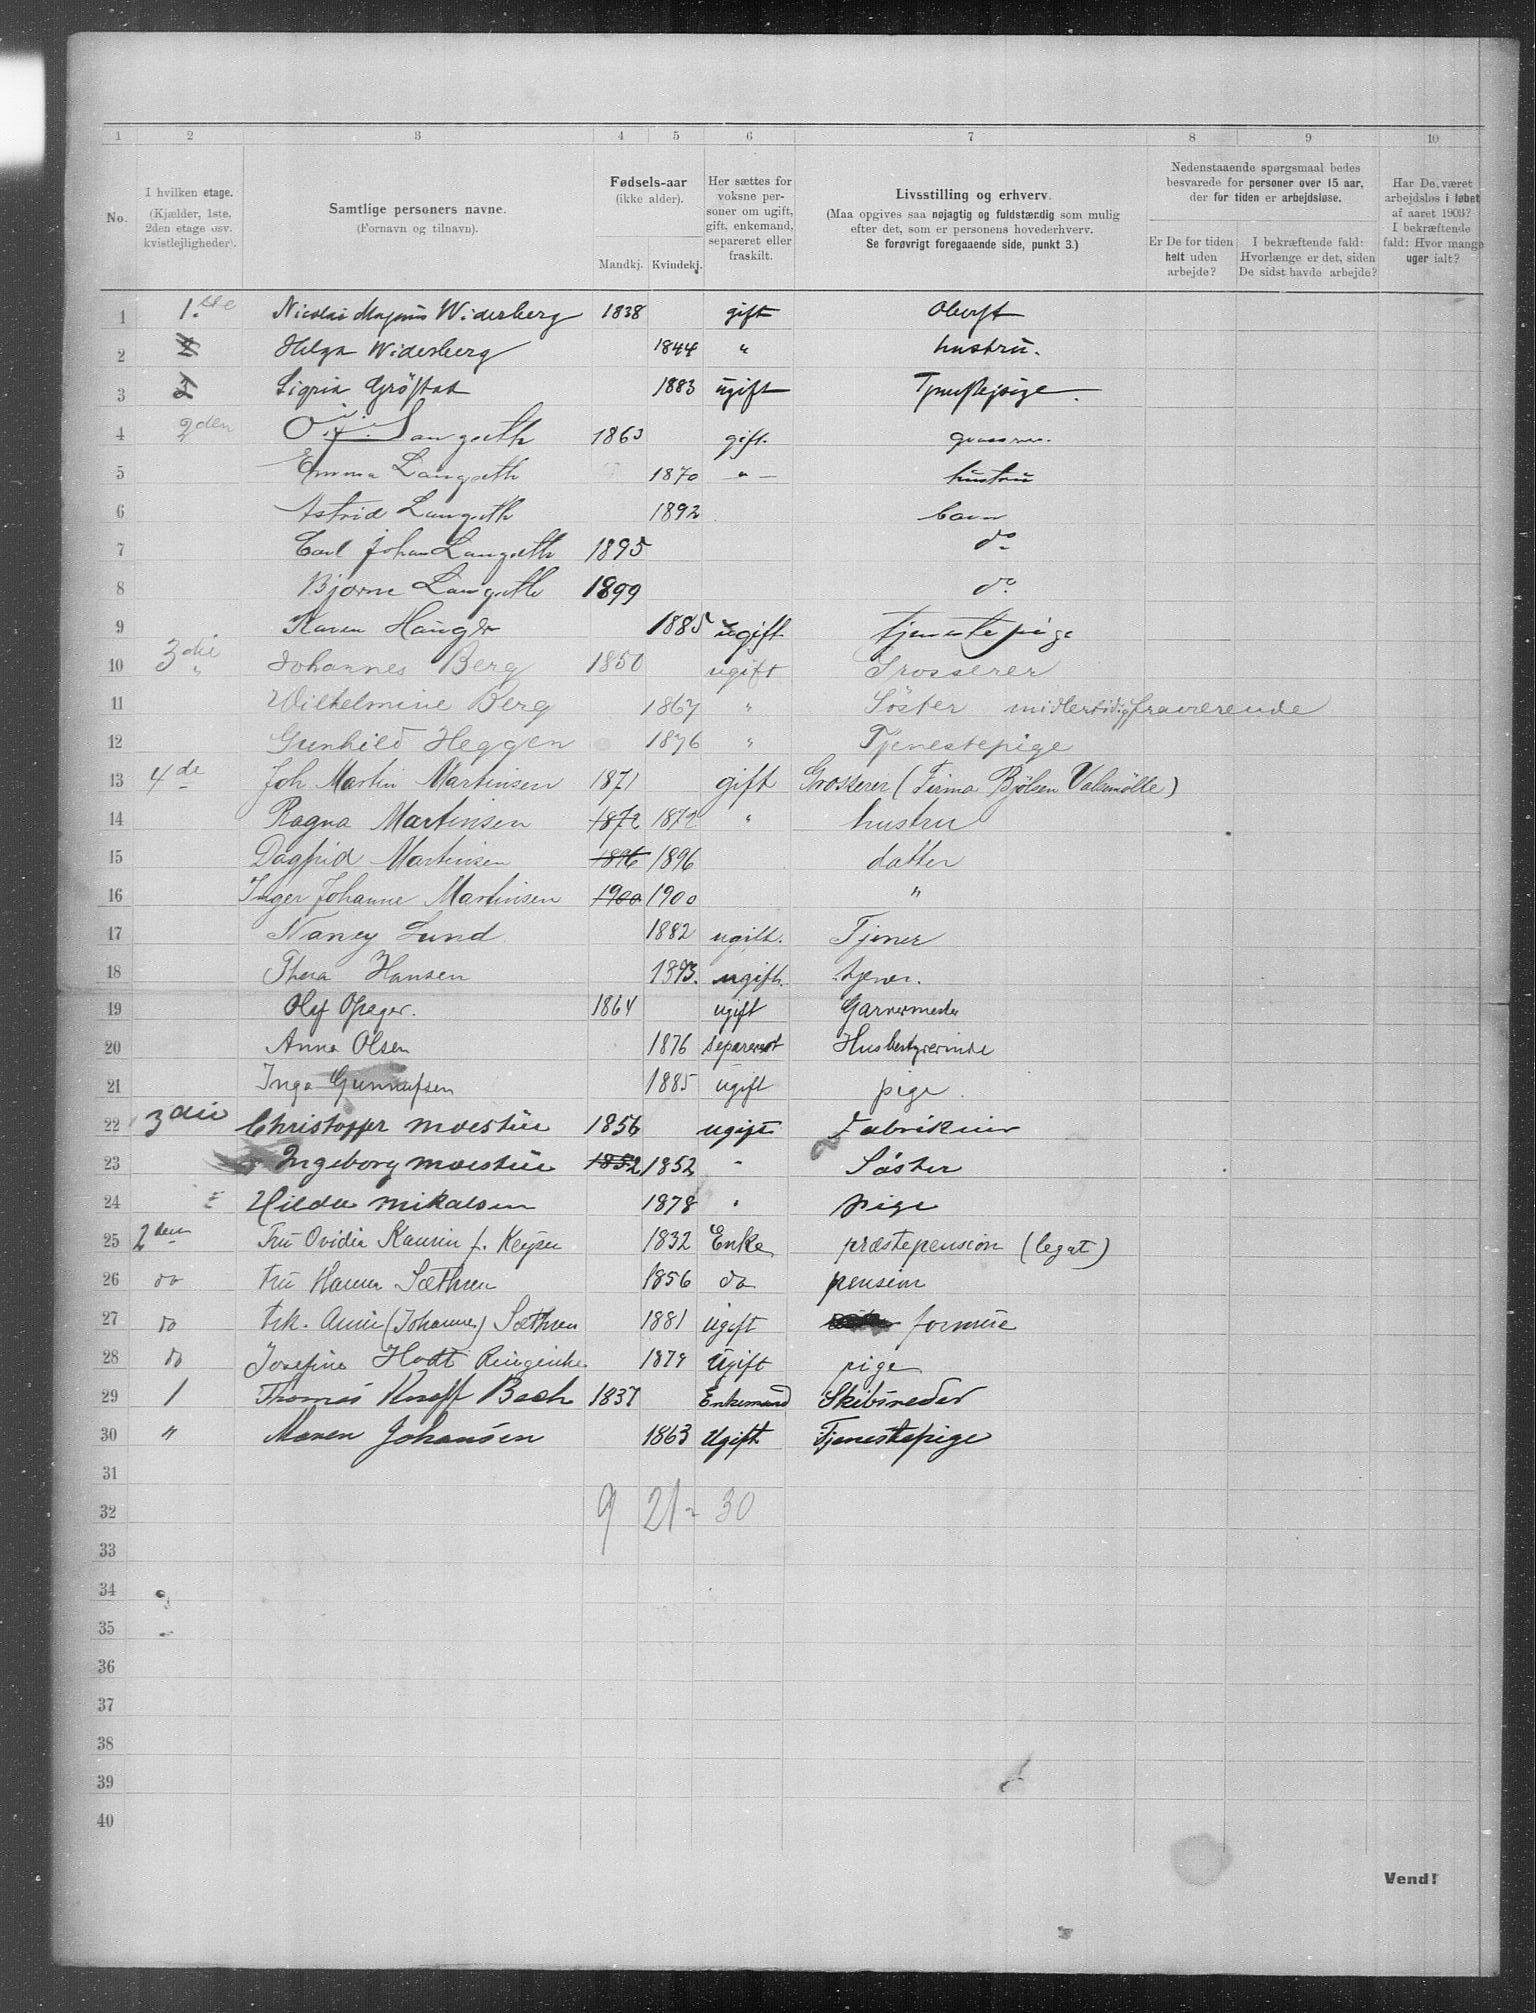 1 2 3 4 5 6 7 8 9 10
No.
I hvilken etage.
(Kjælder, 1ste, 2den etage osv. kvistlejligheder).
Samtlige personers navne.
(Fornavn og tilnavn).
Fødsels-aar
(ikke alder).
Mandkj. Kvindekj.
Her sættes for voksne personer om ugift, gift, enkemand, separeret eller fraskilt.
Livsstilling og erhverv.
(Maa opgives saa nøjagtig og fuldstærdig som mulig efter det, som er personens hovederhverv.
Se forøvrigt foregaaende side, punkt 3.)
Nedenstaaende spørgsmaal bedes besvarede for personer over 15 aar, der for tiden er arbejdsløse.
Er De for tiden helt uden arbejde?
I bekræftende fald: Hvorlænge er det, siden De sidst havde arbejde?
Har De været arbejdsløs i løbet af aaret 1903? I bekræftende fald: Hvor mange uger ialt?
1 1.ste Nicolai Magnus Widerberg 1838 gift Oberst
2 Helga Widerberg 1844 " hustru.
3 Sigrid Gröstad 1883 ugift
4 2den Langseth 1863 gift.
5 Emma Langseth 1870 " hustru
6 Astrid Langseth 1892 barn
7 Carl Johan Langseth 1895 do
8 Bjarne Langseth 1899 do
9 Karen 1885 ugift tjenestepige
10 3die " Johannes Berg 1850 ugift Grosserer
11 Wilhelmine Berg 1867 " Søster midlertidig fraværende
12 Gunhild Heggen 1876 " Tjenestepige
13 4de Joh. Martin Martinsen 1871 gift Grosserer (Firma Bjölsen Valsmölle)
14 Ragna Martinsen 1872 1872 " hustru
15 Dagfrid Martinsen 1896 1896 datter
16 Inger Johanne Martinsen 1900 1900 "
17 Nancy Lund 1882 ugift. Tjener
18 Thora Hansen 1893. ugift. tjener.
19 Olaf Opsger. 1864 ugift Garvermester
20 Anna Olsen 1876 separeret Husbestyrerinde
21 Inga Gunnulfsen 1885 ugift pige.
22 3die Christopher Moestue 1856 ugift Fabrikeier
23 Ingeborg Moestue 1852 1852 " Søster
24 Hilda Mikalsen 1878 " pige
25 2den Fru Ovidia Kaurin f. Keyser 1832 Enke præstepension (legat)
26 do Fru Hanna Sæthren 1856 do pension
27 do Frk. Anni (Johanne) Sæthren 1881 ugift formue
28 do Josefine Hodt 1879 Ugift pige
29 1 Thomas Kneff Bech 1837 Enkemand Skibsreder
30 " Maren Johansen 1863 Ugift Tjenestepige
31
32 9 21 = 30
33
34
35
36
37
38
39
40
Vend!